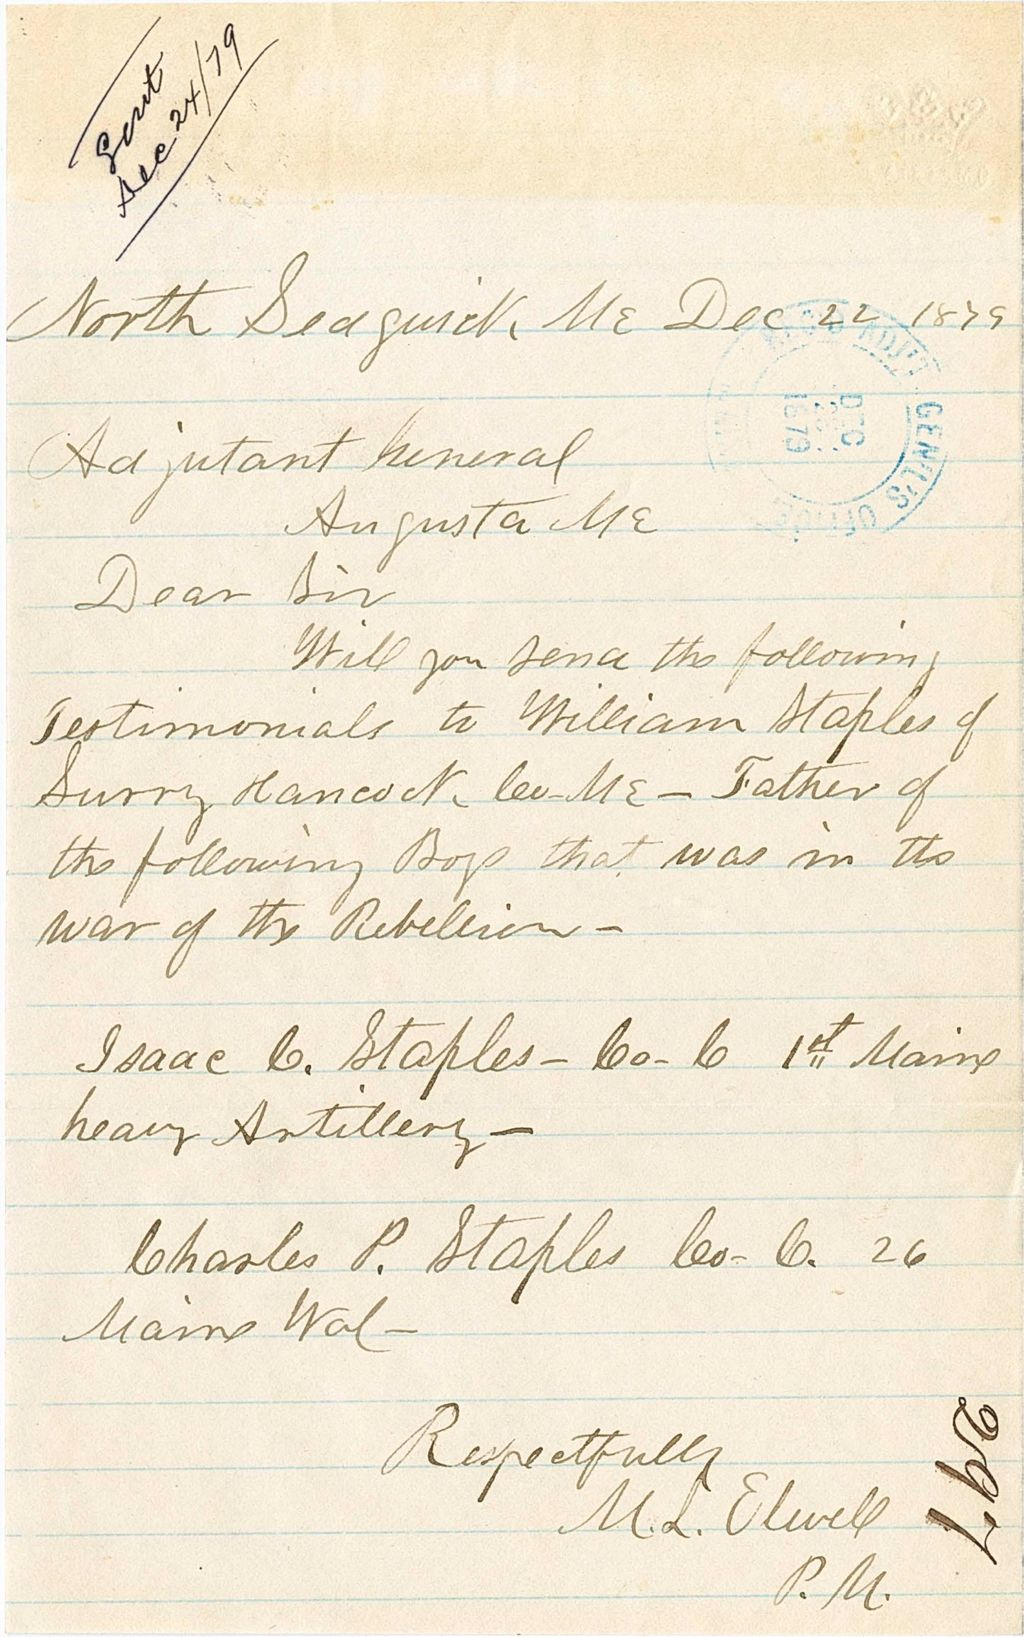 Sent
Dec 24/79
North Sedgwick, Me Dec 22 1879
Adjutant General
Augusta Me
Dear Sir
Will you send the following
Testimonials to William Staples of
Surry Hancock Co-Me - Father of
the following Boys that was in the
war of the Rebellion -
Isaac C. Staples - Co- C 1st Maine
heavy Artillery -
Charles P. Staples Co- C. 26
Maine Vol -
Respectfully
M.L. Elwell
P.M.
297
ADJ'T GENL'S OFFICE
DEC
1879